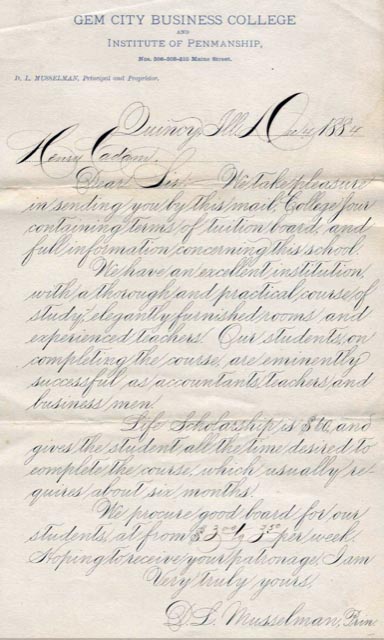 GEM CITY BUSINESS COLLEGE
AND
INSTITUTE OF PENMANSHIP,
Nos. Maine Street.
D. L. MUSSELMAN, Principal and Proprietor.
Quincy, Ills. 1884
Henry Eadam.
Dear Sir:— We take pleasure
in sending you by this mail, College Jour
containing terms of tuition board, and
full information concerning this school.
We have an excellent institution,
with a thorough and practical course of
study, elegantly furnished rooms and
experienced teachers. Our students, on
completing the course, are eminently
successful as accountants, teachers, and
business men.
Life Scholarship is and
gives the student all the time desired to
complete the course, which usually re-
quires about six months.
We procure good board for our
students, at from per week.
Hoping to receive your patronage, I am
Very truly yours,
D. L. Musselman, Prin.